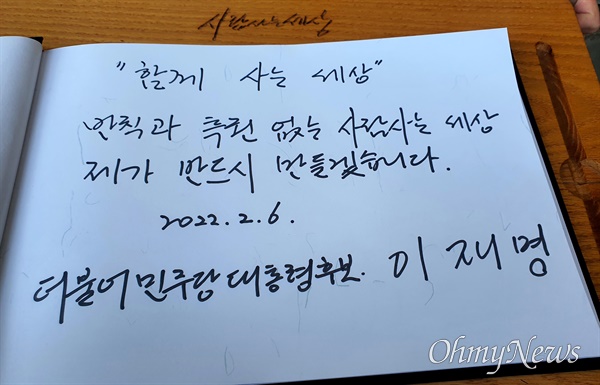 사람사는세상
"함께 사는 세상"
반칙과 특권 없는 사람사는 세상
제가 반드시 만들겠습니다.
2022.2.6.
더불어민주당 대통령후보. 이재명
OhmyNews